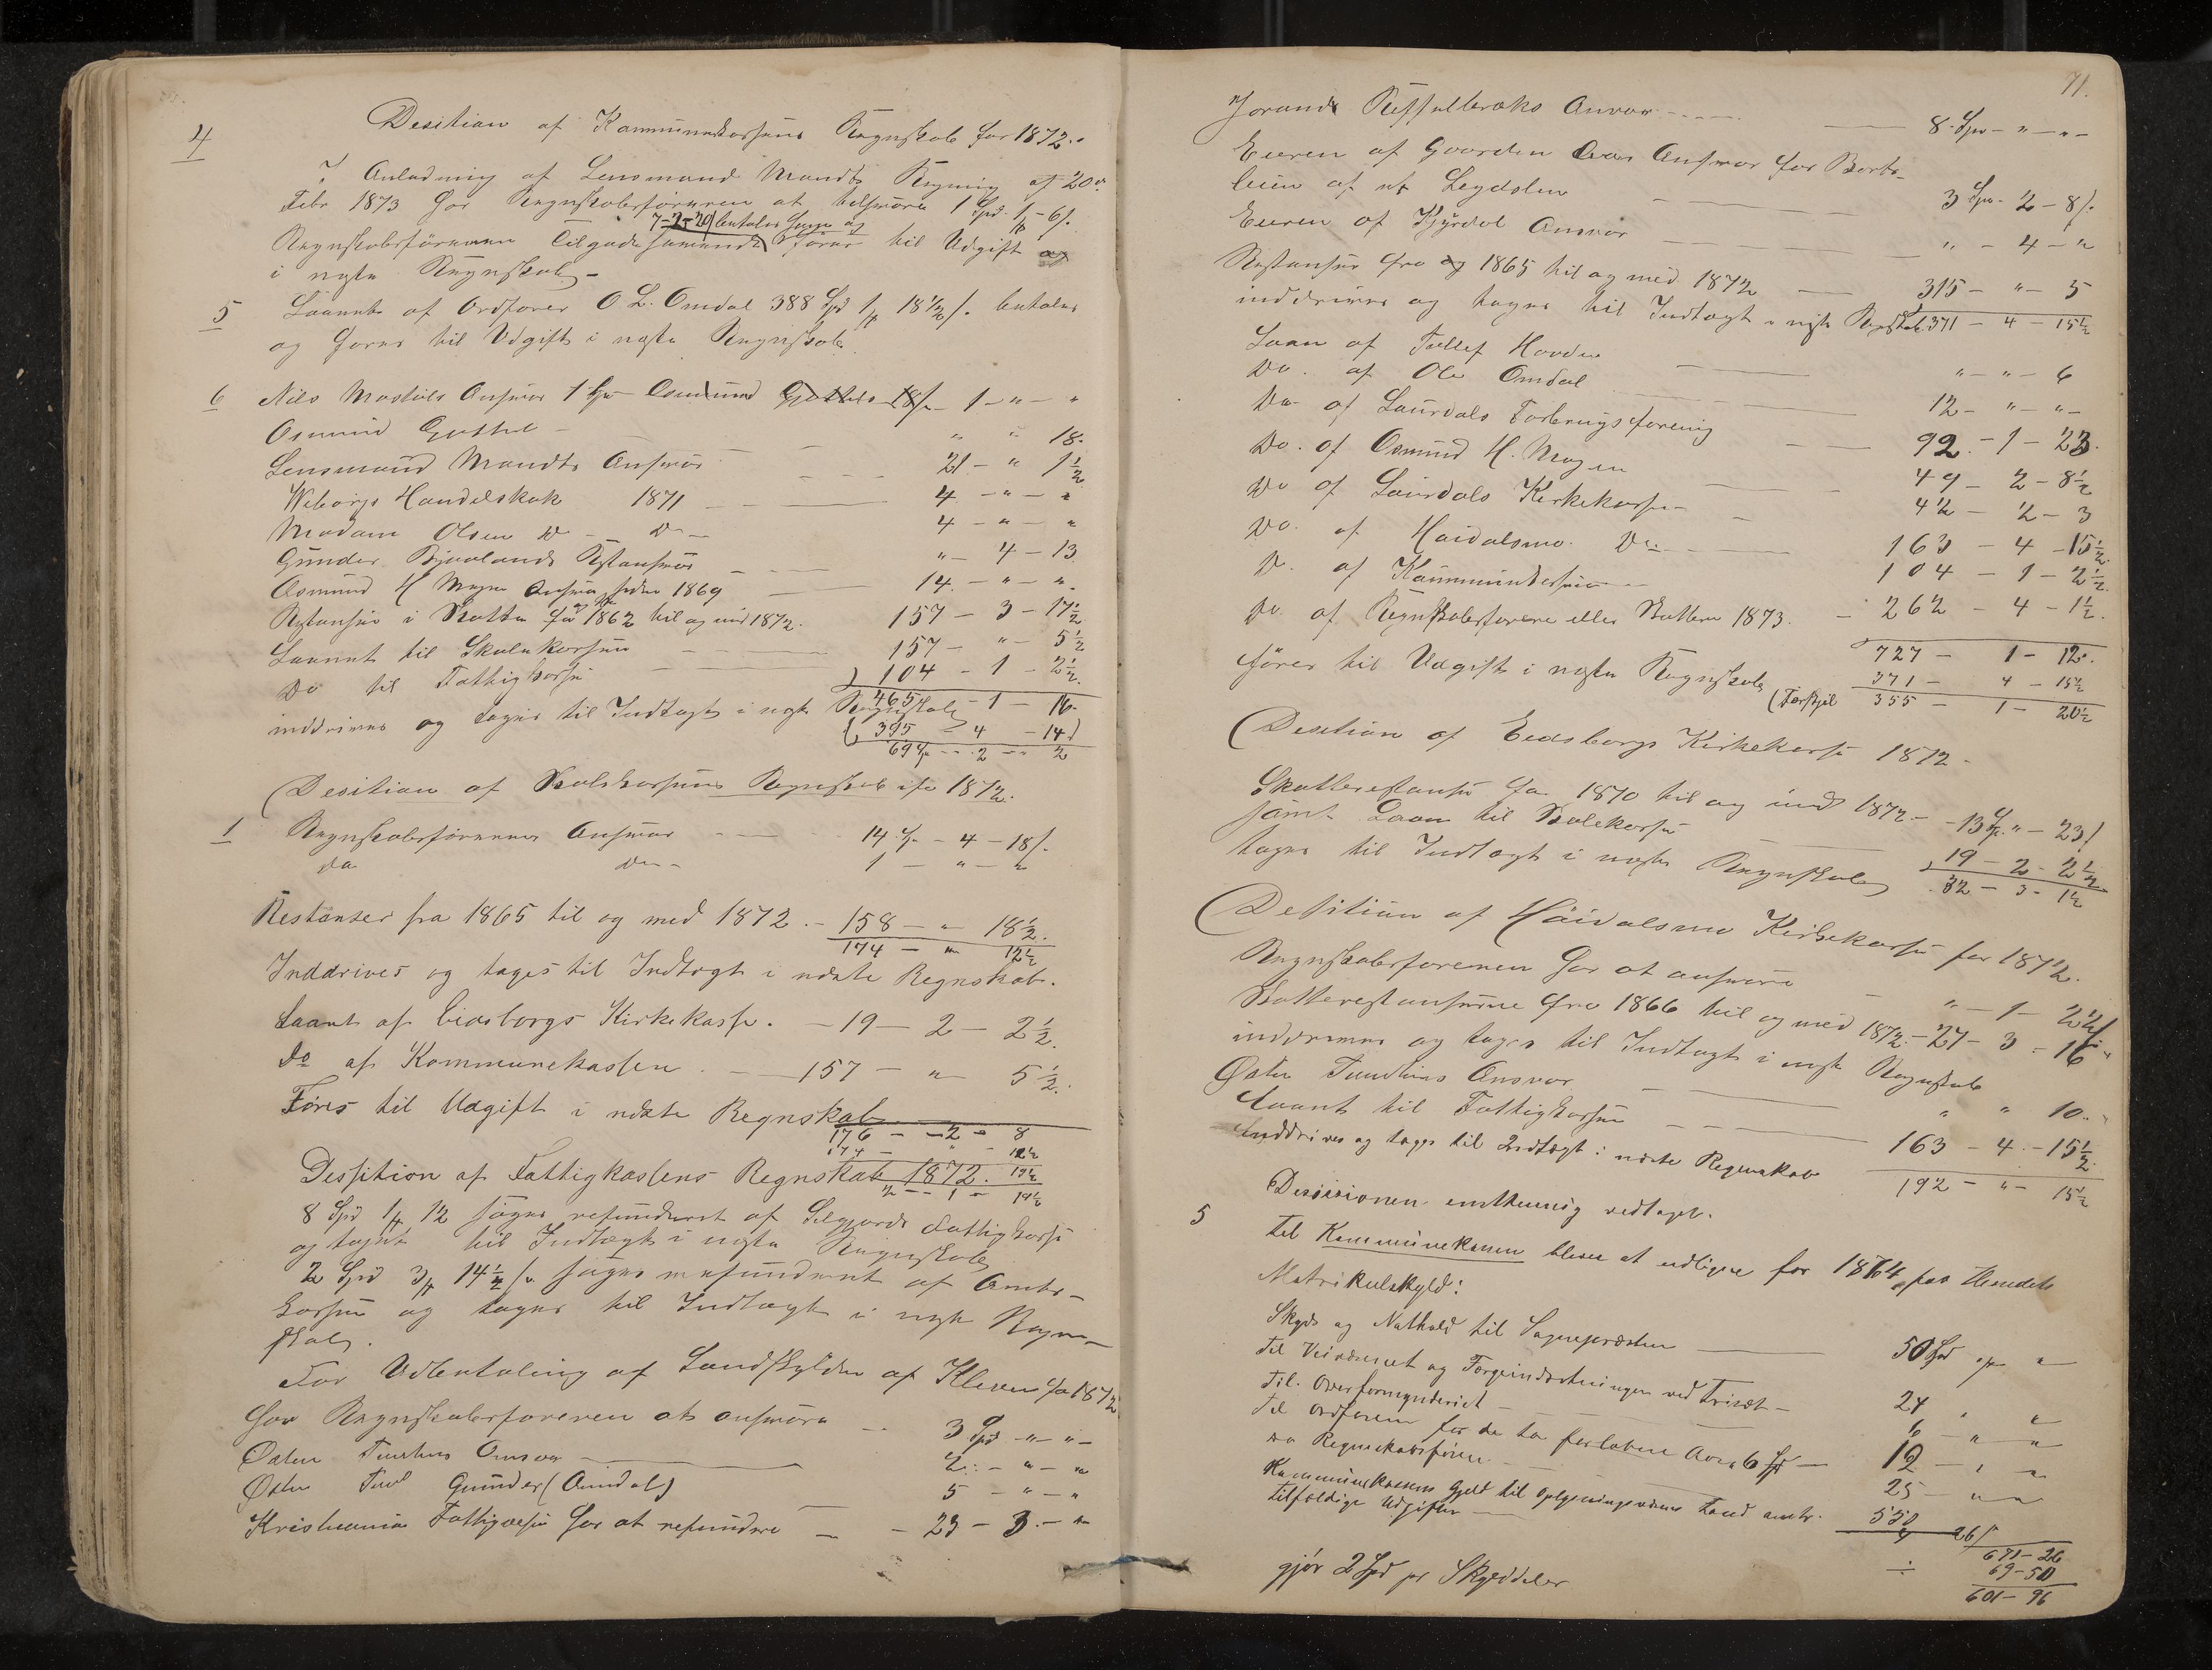 4
Desition af Kommunekassens Regnskab for 1872.
I Anledning af Lensmand Mandts Regning af 20de
Febr 1873 har Regnskabsføreren at 1 Spd. 1/ - 6/.
7-2-20 betales
Regnskabsførerens Tilgodehavende føres til Udgift
i næste Regnskab
5 Laant af Ordfører O L. Omdal 388 Spd 1/ 18 1/2/. betales
og føres til Udgift i næste Regnskab
6 Nils Mostøls Ansvar 1 - " - "
Osmund " " 18.
Lensmand Mandts Ansvar 21 - " 1 1/2
Weborgs Handelskak 1871 4 - " - "
Madam Olsen Do Do 4 - " - "
Gunder Bjaalands Restanser " - 4 - 13
Osmund H Mogen Ansvar siden 1869 14. - " - "
Restanser i Skatter fra 1862 til og med 1872. 157 - 3 - 17 1/2
Laant til Skolekassen 157 - " - 5 1/2
Do til Fattigkassen 104 - 1 - 2 1/2
465 - 1 - 16
inddrives og tages til Indtægt i næste Regnskab
395 4 - 14
69 - 2 - 2
Desition af Skolekassens Regnskab for 1872.
1 Regnskabsførerens Ansvar 14 - 4 - 18/.
do Do 1 - " - "
Restanser fra 1865 til og med 1872. - 158 - " 18 1/2.
174 - " 12 1/2
Inddrives og tages til Indtægt i næste Regnskab.
Laant af Eidsborgs Kirkekasse. - 19 - 2 - 2 1/2.
Do af Kommunekassen. - 157 - " 5 1/2.
Føres til Udgift i næste Regnskab
176 - 2 - 8
174 - " - 12 1/2
2 - 1 - 19 1/2
Dessition af Fattigkassens Regnskab 1872.
8 Spd 1/ 12 søges refunderet af Siljords Fattigkasse
og tages til Indtægt i næste Regnskab
2 Spd 3/ 14 1/2/. søges refunderet af Amts-
kassen og tages til Indtægt i næste Regn-
skab.
For Udbetaling af Landskylden af Kleven for 1872
har Regnskabsføreren at ansvare 3 Spd - " -
Østen Ansvar 2. - " - "
Østen Gunder (Omdal) 5 - " - "
Kristiania Fattigvæsen har at refundere - 23 - 3. - "
71.
Jorands Ansvar 8 - Spd - " - " -
Eieren af Gaarden Aas Ansvar for Bort-
leien af Legdslen 3 Spd - 2 - 8/.
Eieren af Kyrdal Ansvar " - 4 - "
Restanser fra 1865 til og med 1872 315 - " - 5
inddrives og tages til Indtægt i næste Regnskab 371 - 4 - 15 1/2
Laan af Tellef Hovden " - " - 6
Do. af Ole Omdal 12 - " - " -
Do af Laurdals Forbrugsforening 92. - 1 - 23.
Do. af Osmund H. Mogen 49 - 2 - 8 1/2
Do af Laurdals Kirkekasse 42 - 2 - 3
Do. af Høidalsmo Do. 163 - 4 - 15 1/2
D. af Kommunekassen 104 - 1 - 2 1/2.
Do. af Regnskabsførere eller Skatten 1873. - 262 - 4 - 1 1/2.
727 - 1 - 12.
føres til Udgift i næste Regnskab 371 - 4 - 15 1/2
(Forskjel 355 - 1 - 20 1/2
Desition af Eidsborgs Kirkekasse 1872 -
Skatterestanser fra 1870 til og med 1872 - - 13 Spd. " - 23/
samt Laan til Skolekassen 19 - 2 - 2 1/2
tages til Indtægt i næste Regnskab 32 - 3 - 1 1/2
Desition af Høidalsmo Kirkekasse for 1872.
Regnskabsføreren har at ansvare " - 1 - 22/
Skatterestanserne fra 1866 til og med 1872. - 27 - 3 - 16
inddrives og tages til Indtægt i næste Regnskab
Østen Ansvar " " 10.
Laant til Fattigkassen 163 - 4 - 15 1/2
Inddrives og tages til Indtægt i næste Regnskab 192 - " - 15 1/2
Desisionen enstemmig vedtaget.
5 Til Kommunekassen bliver at udligne for 1874 paa Heredets
Matrikulskyld:
Skyds og Nathold til Sognepræsten 50 Spd "
Til Veivæsenet og Færgeindretningen ved Trisæt - 24 " "
Til Overformynderiet 6 - " "
Til Ordføreren for de to forløbne Aar a 6 Spd - 12 - " "
Do Regnskabsfører 25 " "
Kommunekassens Gjeld til Oplysningsvæsenets Fond 550 26/
Tilfældige Udgifter 4
671 - 26
÷ 69 - 50
601 - 96
gjør 2 Spd pr Skylddaler